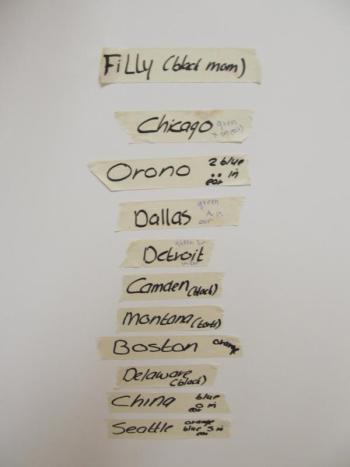 Filly (black mom)
Chicago green
Orono 2 blue
in
ear
Dallas green
ear
Detroit
Camden (black)
Montana (torti)
Boston orange
Delaware
(black)
China blue
in
ear
Seattle orange
blue in
ear